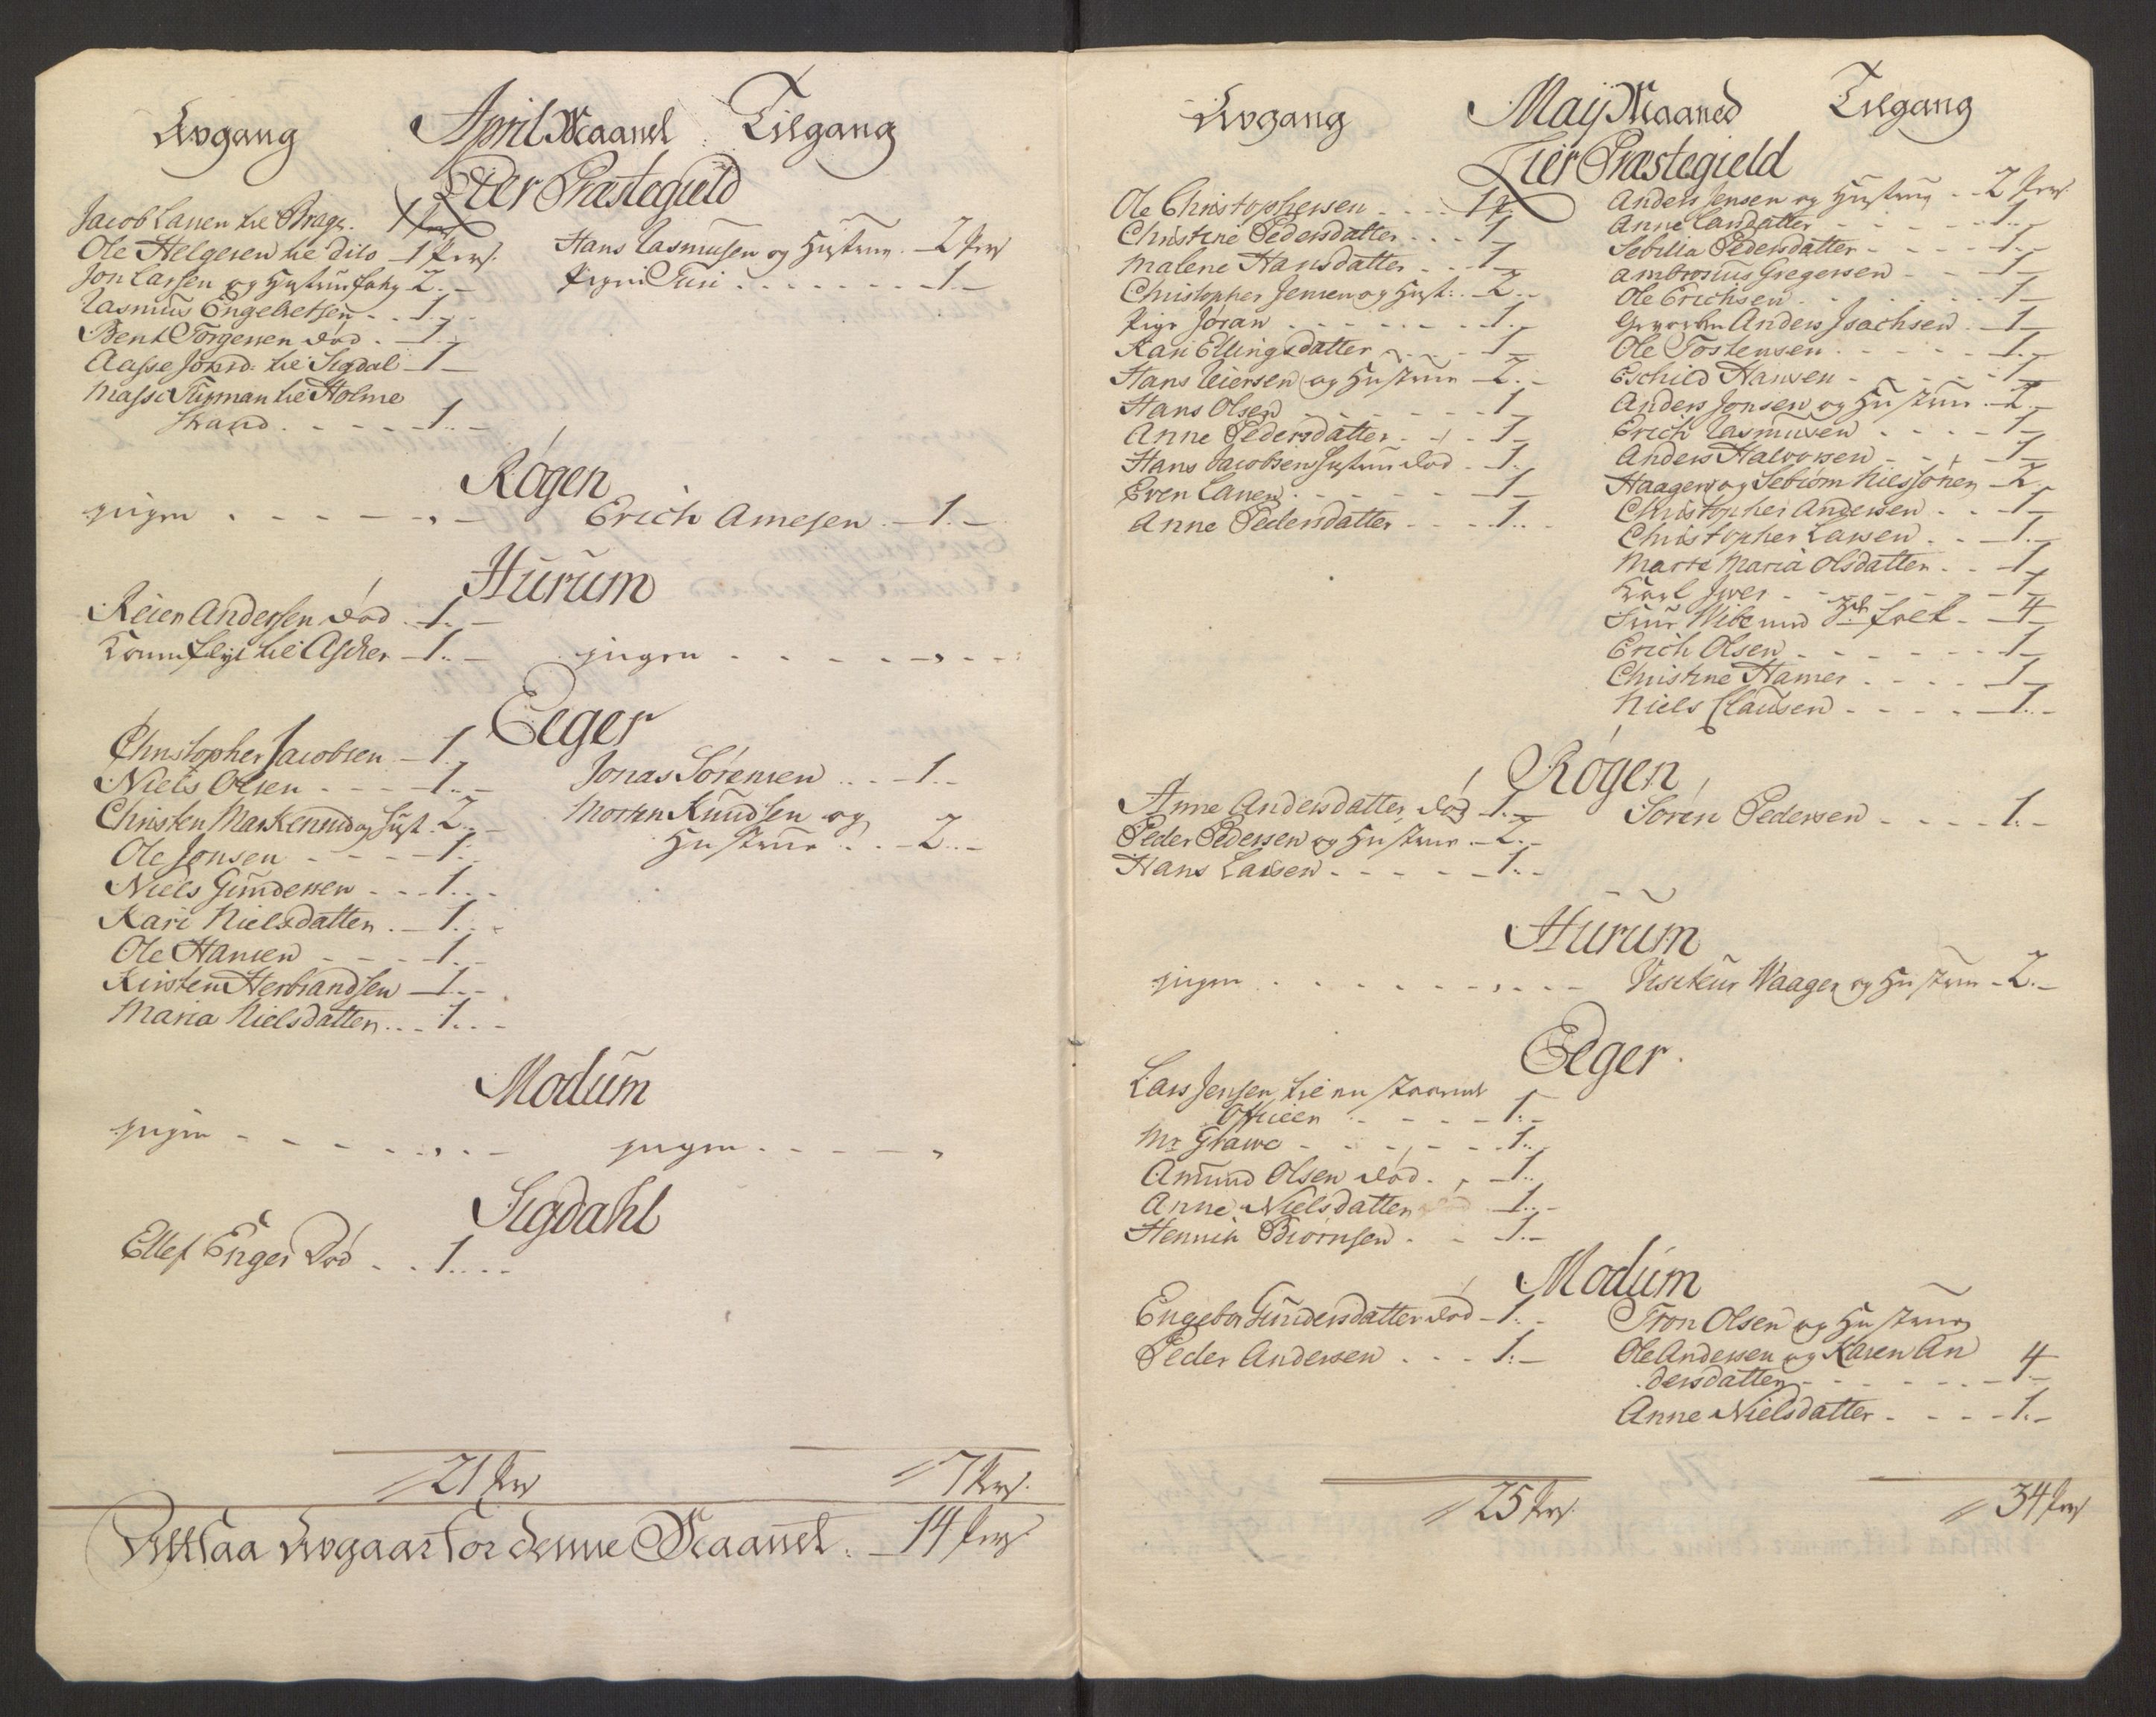 Avgang April Maaned Tilgang
Lier Præstegield
Jacob Larsen til Brage. 1 Pers
Ole Helgesen til dito - 1 Pers. Hans Rasmusen og Hustrue - 2 Pers
Jon Larsen og Hustrue 2 Pigen Turi - 1
Rasmus Engelretsen - 1
Bent Torgersen død - 1
Aasse Jonsd: til Sigdal - 1
Masse Turman til Holme
strand - 1
Røgen
jngen - Erich Arnesen - 1
Hurum
Reier Andersen død - 1
til Ascher - 1 jngen
Eeger
Christopher Jacobsen - 1
Niels Olsen - 1 Jonas Sørensen - 1
Christen og Hust 2 Morten Knudsen og
Ole Jonsen - 1 Hustrue - 2
Niels Gundersen - 1
Kari Nielsdatter - 1
Ole Hansen - 1
Kirsten Herbrandsen - 1
Maria Nielsdatter - 1
Modum
jngen - jngen
Sigdahl
Ellef Enger Død - 1
21 Pers 7 Pers.
Altsaa Avgaar for denne Maaned. - 14 Pers
Avgang Maij Maaned Tilgang
Lier Præstegield
Ole Christophersen - 1 P Anders Jensen og Hustrue - 2 Pers.
Christine Pedersdatter - 1 Anne Larsdatter - 1
Malene Hansdatter - 1 Sebilla Pedersdatter - 1
Christopher Jensen og Hust: 2 Ambrosius Gregersen - 1
Pige Joran - 1 Ole Erichsen - 1
Kari Ellingsdatter - 1 Anders Isachsen - 1
Hans Reiersen og Hustrue - 2 Ole Tostensen - 1
Hans Olsen - 1 Eschild Hansen - 1
Anne Pedersdatter - 1 Anders Jonsen og Hustrue - 2
Hans Jacobsens Hustrue død - 1 Erich Rasmusen - 1
Even Larsen - 1 Anders Halvorsen - 1
Anne Pedersdatter - 1 Haagen og Sebiørn Nielssønen - 2
Christopher Andersen - 1
Christopher Larsen - 1
Marte Maria Olsdatter - 1
Karl Iver - 1
Wibe med 3de folk - 4
Erich Olsen - 1
Christine Hamer - 1
Niels Clausen - 1
Røgen
Anne Andersdatter død - 1 Søren Pedersen - 1
Peder Pedersen og Hustrue - 2
Hans Larsen - 1
Hurum
jngen - Viseteur Waager og Hustrue - 2
Eeger.
Lars Jensen til
Officeer - 1
Mr Grawe - 1
Amund Olsen død - 1
Anne Nielsdatter død - 1
Henrich Biørnsen - 1
Modum
Engebor Gundersdatter død - 1 Tron Olsen og Hustrue
Peder Andersen - 1 Ole Andersen og Karen An 4
dersdatter - 1
Anne Nielsdatter - 1
25 Pers. 34 Pers